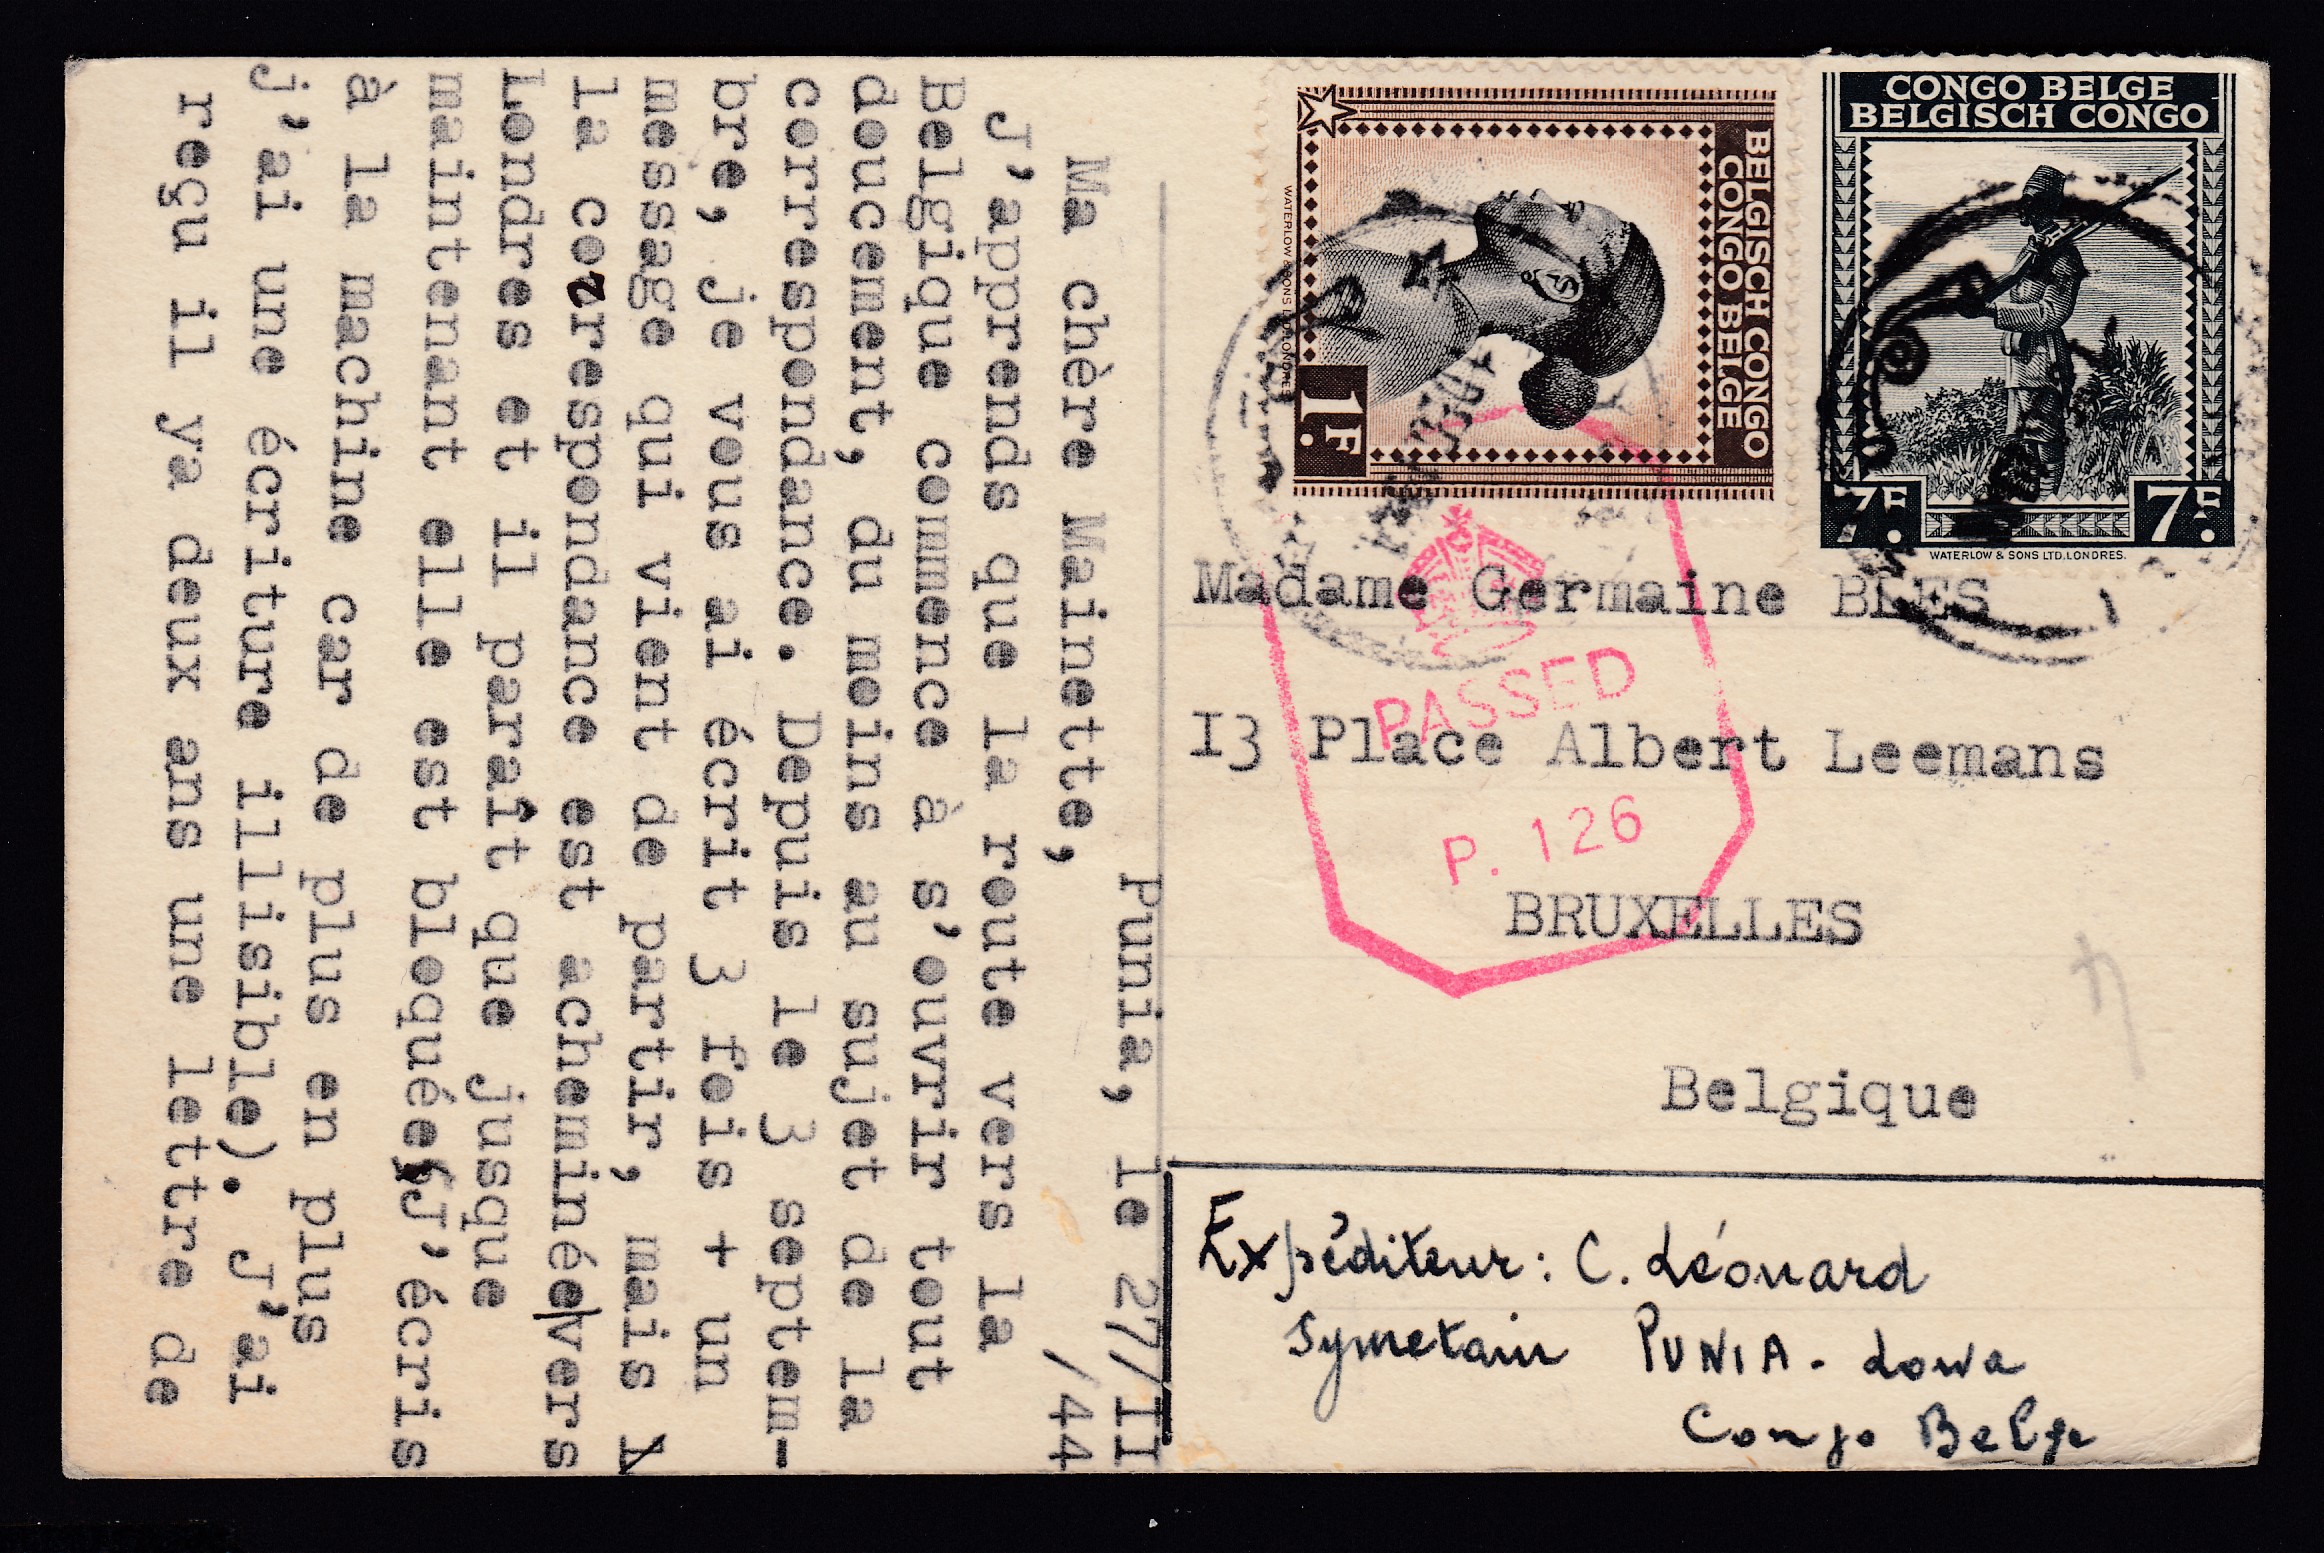 Punia, le 27/II
/44
Ma chère Mainette,
J'apprends que la route vers la
Belgique commence à s'ouvrir tout
doucement, du moins au sujet de la
correspondance. Depuis le 3 septem-
bre, je vous ai écrit 3 fois + un
message qui vient de partir, mais
la correspondance est acheminée vers
Londres et il paraît que jusque
maintenant elle est bloquée. J'écris
à la machine car de plus en plus
j'ai une écriture illisible). J'ai
reçu il ya deux ans une lettre de
BELGISCH CONGO
CONGO BELGE
1F.
WATERLOW & SONS LTD. LONDRES
CONGO BELGE
BELGISCH CONGO
7F. 7F.
WATERLOW & SONS LTD. LONDRES.
Madame Germaine BLES
PASSED
I3 Place Albert Leemans
P. 126
BRUXELLES
Belgique
Expéditeur: C. Léonard
Symetain PUNIA - Lowa
Congo Belge